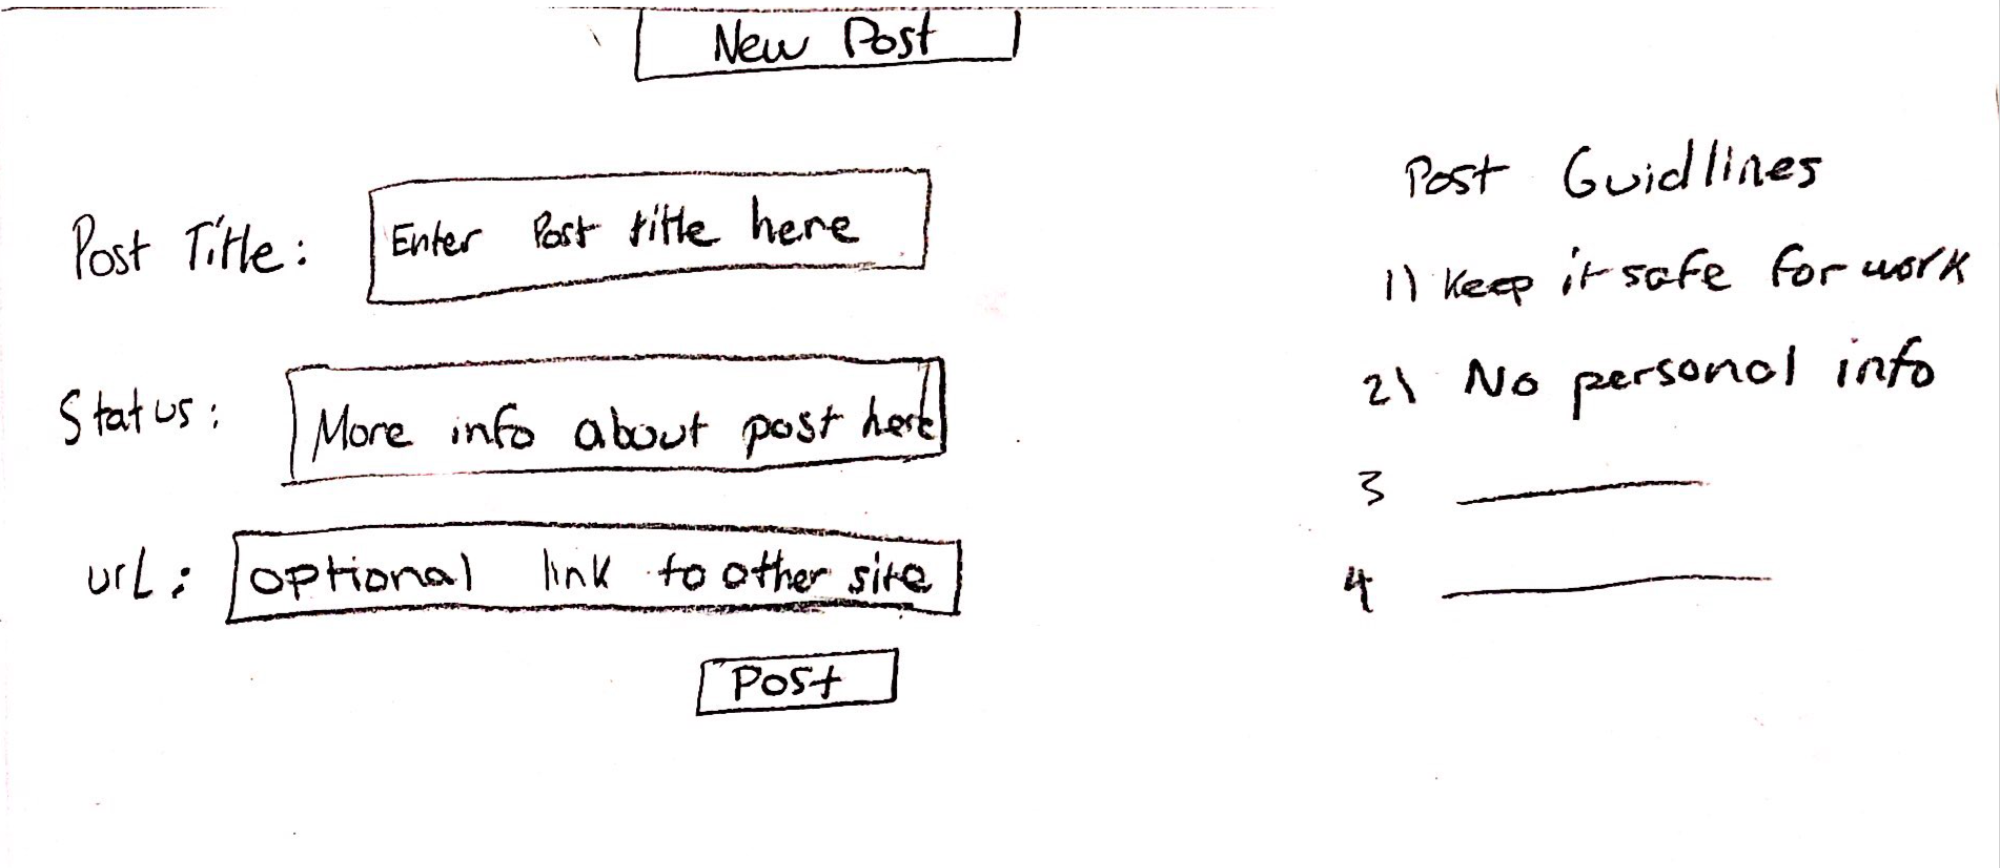 New Post
Post Title:
Enter Post title here
Status:
More info about post here
Url:
optional link to other site
Post
Post Guidlines
1) Keep it safe for work
2) No personal info
3
4